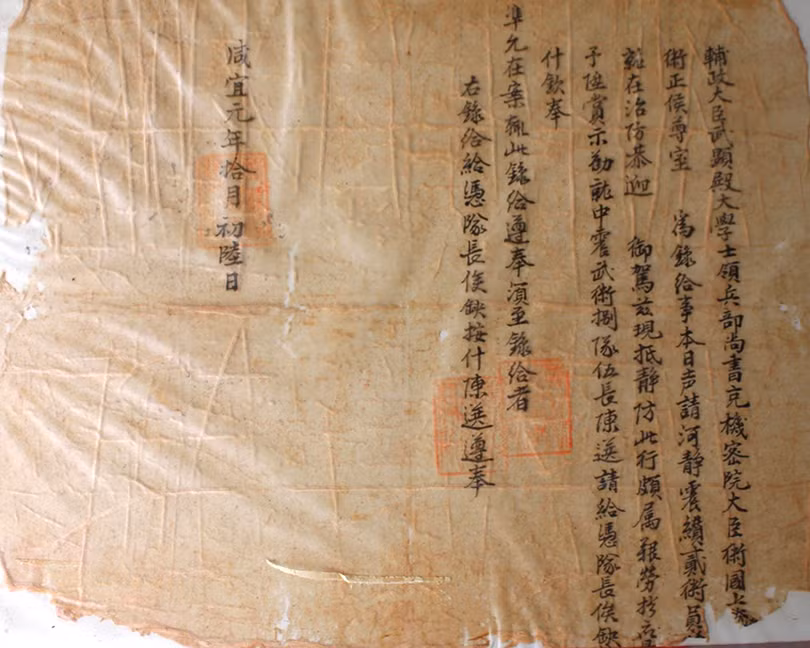 輔政大臣武顯殿大學士領兵部尚書充機密院大臣衛國上將
衛正侯尊室 為錄給事本日声請河靜震績貳衛員
就在治防恭迎 御駕茲現抵靜防此行頗属艱勞
予陞賞示勸就中震武衛捌隊伍長陳選請給憑隊長俟缺
什欽奉
準允在案輒此錄給遵奉須至錄給者
右錄給給憑隊長俟缺按什陳選遵奉
咸宜元年拾月初陸日